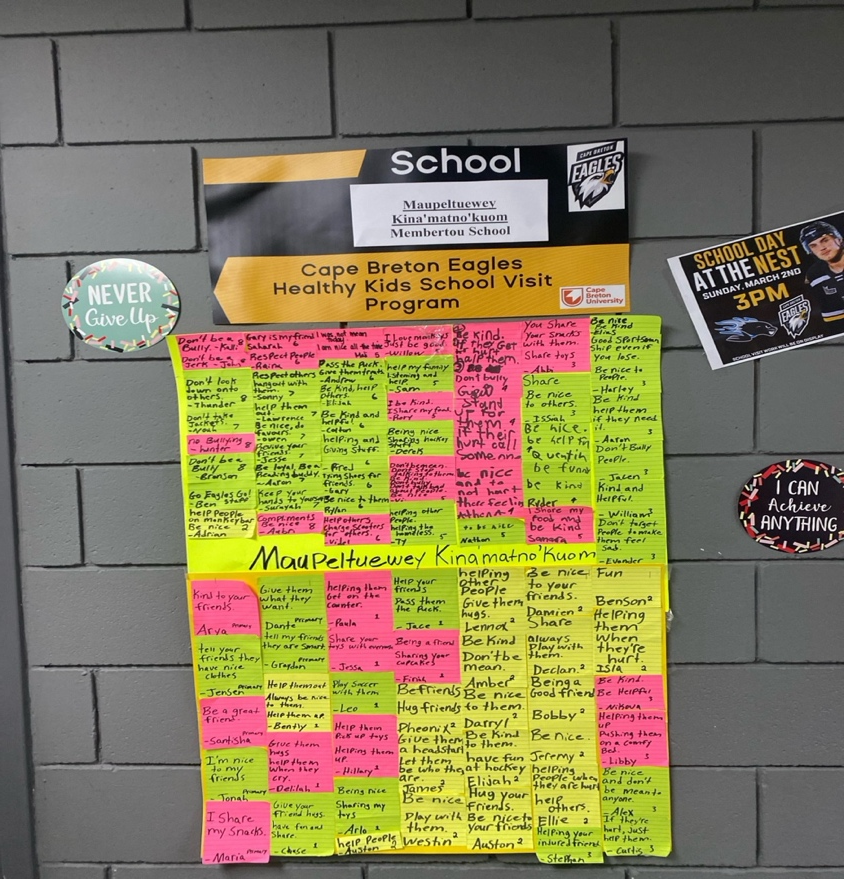 School
CAPE BRETON
EAGLES
Maupeltuewey
Kina'matno'kuom
Membertou School
Cape Breton Eagles
Healthy Kids School Visit
Program
Cape
Breton
University
NEVER
Give Up
SCHOOL DAY
AT THE NEST
SUNDAY, MARCH 2ND
3PM
EAGLES
I CAN
Achieve
ANYTHING
Don't be a
Bully
Don't be a
Jerk - John
Don't look
down onto
others. 8
- Thander
Don't take
Jackets. 7
- Noah
no Bullying
- hunter 8
Don't be a
Bully 8
- Bronson
Go Eagles Go!
- Ben
help people
on monkeybar
Be nice 2
- Adrian
Gary is my friend
- Saharah 6
Respect People
- Raina 6
Respect others
hangout with
them.
- Sonny 7
help them
out.
- Lawrence 7
Be nice, do
favours.
- owen 7
friends.
- Jesse 7
- Aaron
Keep your
hands to yourself
- Surayah 7
Compliments
Be nice 8
- Aubri
I was not mean
today.
I am nice all the time
5
Pass the Puck.
Give them treats
- Andrew 6
Be Kind, help
others. 6
- Elijah
Be Kind and
helpful 6
- Colton
helping and
Giving Stuff.
- Fred 6
friends. 6
- Gary
Be nice to them
Ryllan 6
Help others
Charge Scooters
for others. 6
- Violet
I Love monkeys
Just be good.
- Willow
help my family
listening and
help 5
- Sam
I be Kind.
I Share my food.
- Rory
Being nice
Sharing hockey
Stuff
- Derek
Don't be mean.
helping other
People.
helping the
homeless.
- Ty 5
Be Kind.
if they Got
hurt
help them.
Don't bully
Stand
up for
them 4
if their
hurt call
someone
be nice
and to
not hurt
their feelin
Athena 4
To be nice
Nathan 5
You Share
Your Snacks
with them.
Share toys
- Abbi 3
Share
Be nice
to others.
- Issiah 3
Be nice.
be helpful
Quentin 4
be funny
be Kind
Ryder 4
I Share my
food and
be Kind
Samara 5
Be nice
Be Kind
Elias
Good Sportsman
Ship even if
you lose.
Be nice to
People.
- Harley 3
Be Kind
help them
if they need
it.
- Aaron 3
Don't Bully
People.
- Jacen 3
Kind and
Helpful.
- William 3
Don't forget
People to make
them feel
Sad.
- Evander 3
Maupeltuewey Kina'matno'Kuom
Kind to your
friends.
Arya Primary
tell your
friends they
have nice
clothes
- Jensen Primary
Be a great
friend.
- Santisha Primary
I'm nice
to my
friends
- Jonah Primary
I Share
my Snacks.
- Maria Primary
Give them
what they
want.
Dante Primary
tell my friends
they are Smart.
- Graydon Primary
Help them out
Always be nice
to them.
Help them up
- Bently 1
Give them
hugs
help them
When they
cry.
- Delilah 1
Give your
friend hugs.
have fun and
Share.
- Chase 1
helping them
Get on the
Counter.
- Paula 1
Share your
toys with everyone
- Jessa 1
Play Soccer
with them
- Leo 1
Help them
Pick up toys
Helping them
up.
- Hillary 2
Being nice
Sharing my
toys
- Arlo 2
help People
- Auston 2
Help your
friends
Pass them
the Puck.
- Jace 1
Being a friend
Sharing your
cupcakes
- Finn 1
Be friends
Hug friends
Pheonix 2
Give them
a headstart
Let them
be who they
are.
James 2
Be nice
Play with
them.
Westin 2
helping
other
People
Give them
hugs.
Lennox 2
Be Kind
Don't be
mean.
Amber 2
Be nice
to them.
Darryl 2
Be Kind
to them.
have fun
at hockey
Elijah 2
Hug your
friends.
Be nice to
your friends
Auston 2
Be nice
to your
friends.
Damien 2
Share
always
Play with
them.
Declan 2
Being a
Good friend
Bobby 2
Be nice.
Jeremy 2
helping
People when
they are hurt
help
others.
Ellie 2
Helping your
injured friend
- Stephan 3
Fun
Benson 2
Helping
them
When
they're
hurt.
Isla 2
Be Kind.
Be Helpful
- Nikova 3
Helping them
up
Pushing them
on a Comfy
Bed.
- Libby 3
Be nice
and don't
be mean to
anyone.
- Alex 3
If they're
hurt, just
help them.
- Curtis 3